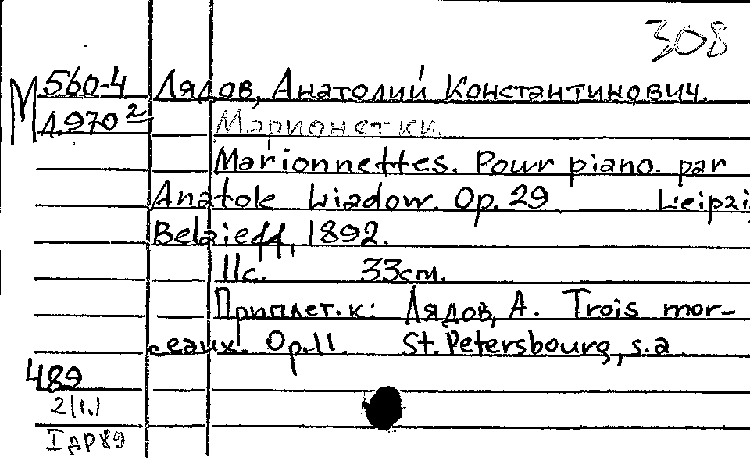 308
М 560-4 Лядов, Анатолий Константинович.
Л970² Марионетки.
Marionnettes. Pour piano. par
Anatole Liadow. Op. 29 Leipzi
Belaieff, 1892.
11с. 33см.
Приплет. к: Лядов, А. Trois mor-
ceaux. Op. 11. St. Petersbourg, s.a
489
2(1.)
I др89